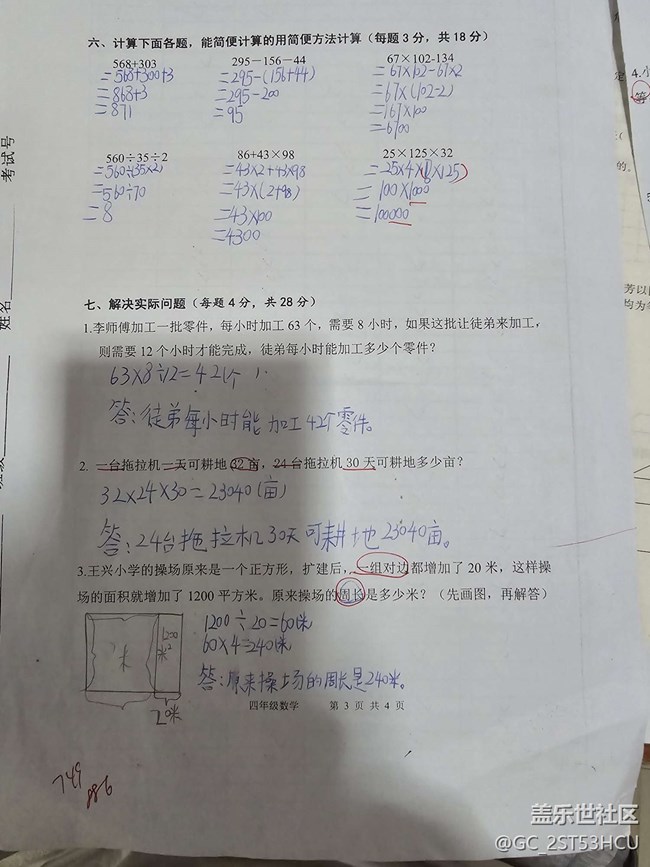 六、计算下面各题，能简便计算的用简便方法计算（每题3分，共18分）
568+303 295－156－44 67×102-134
=568+300+3 =295-(156+44) =67×102-67×2
=868+3 =295-200 =67×(102-2)
=871 =95 =167×100
=6700
560÷35÷2 86+43×98 25×125×32
=560÷(35×2) =43×2+43×98 =25×4×(8×125)
=560÷70 =43×(2+98) =100×1000
=8 =43×100 =100000
=4300
考试号
姓名
七、解决实际问题（每题4分，共28分）
1.李师傅加工一批零件，每小时加工63个，需要8小时，如果这批让徒弟来加工，
则需要12个小时才能完成，徒弟每小时能加工多少个零件？
63×8÷12=42(个)
答：徒弟每小时能加工42个零件。
2. 一台拖拉机一天可耕地32亩，24台拖拉机30天可耕地多少亩？
32×24×30=23040(亩)
答：24台拖拉机30天可耕地23040亩。
3.王兴小学的操场原来是一个正方形，扩建后，一组对边都增加了20米，这样操
场的面积就增加了1200平方米。原来操场的周长是多少米？（先画图，再解答）
1200÷20=60米
60×4=240米
答：原来操场的周长是240米。
?米
1200
米²
20米
四年级数学 第 3 页 共 4 页
盖乐世社区
@GC_2ST53HCU